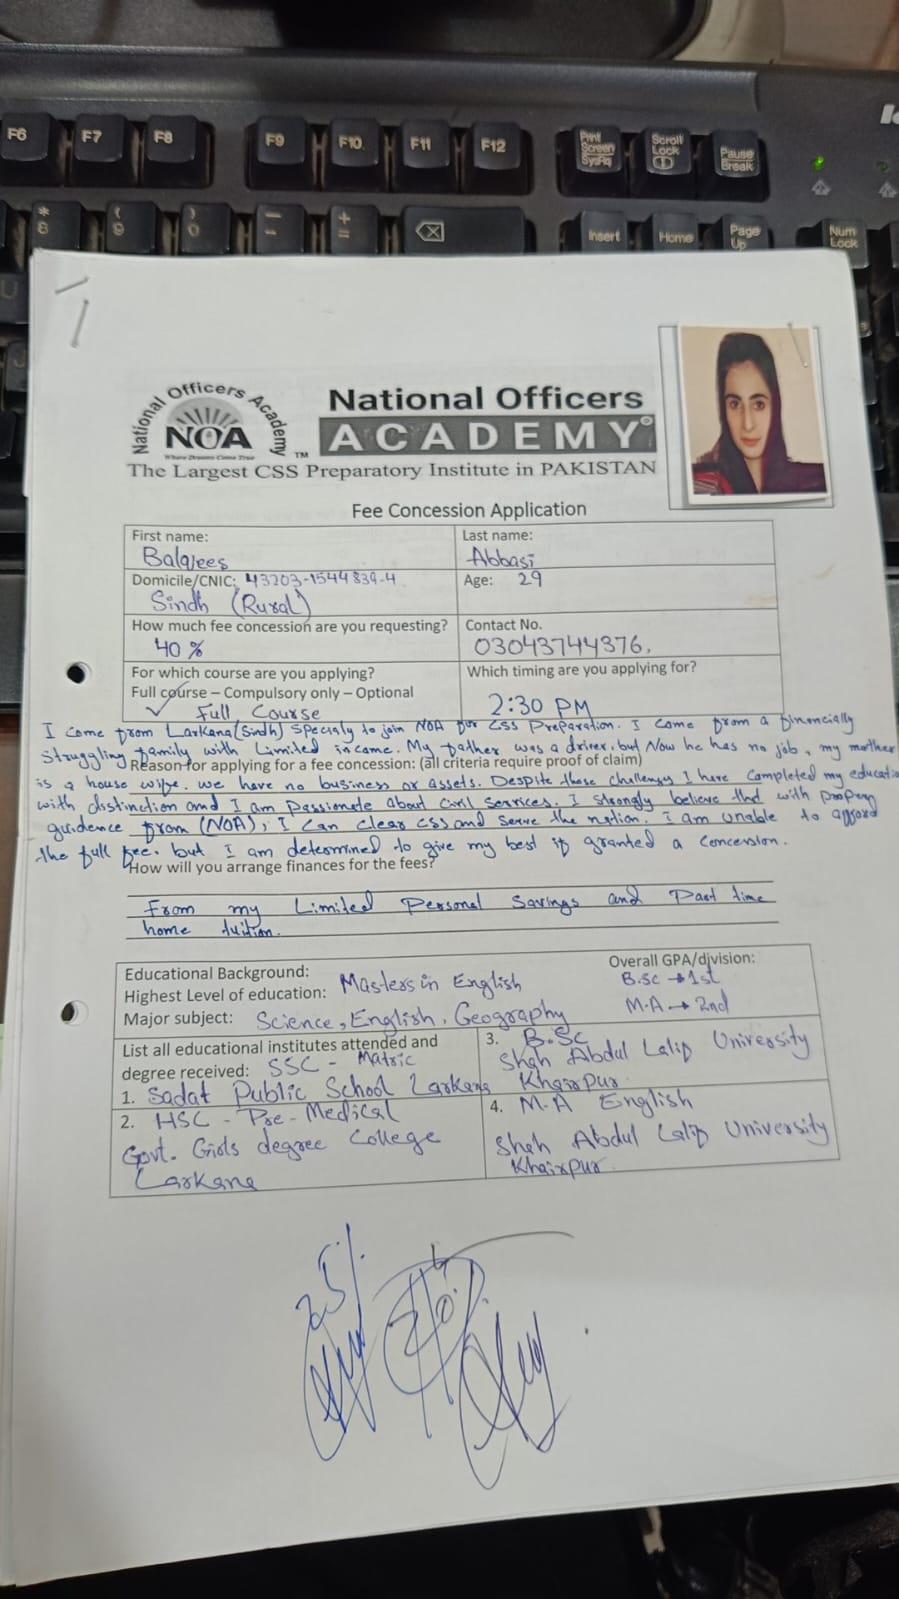 F6 F7 F8 F9 F10 F11 F12 Print Screen SysRq Scroll Lock Pause Break
* 8 ( 9 ) 0 - + = Insert Home Page Up Num Lock
U
National Officers Academy
NOA
Where Dreams Come True
TM
National Officers
ACADEMY
The Largest CSS Preparatory Institute in PAKISTAN
Fee Concession Application
First name: Last name:
Balqees Abbasi
Domicile/CNIC: 43203-1544839-4 Age: 29
Sindh (Rural)
How much fee concession are you requesting? Contact No.
40 % 03043744376,
For which course are you applying? Which timing are you applying for?
Full course – Compulsory only – Optional
Full Course 2:30 PM
I come from Larkana (Sindh) specialy to join NOA for CSS Preparation. I come from a financially
struggling family with Limited income. My father was a driver, but Now he has no job, my mother
Reason for applying for a fee concession: (all criteria require proof of claim)
is a house wife. we have no business or assets. Despite these I have completed my
with distinction and I am passionate about civil services. I strongly believe that with
from (NOA), I can clear CSS and serve the nation. I am unable to afford
the full fee. but I am determined to give my best if granted a concession.
How will you arrange finances for the fees?
From my Limited Personal Savings and Part time
home tuition.
Educational Background: Overall GPA/division:
Highest Level of education: Masters in English B.Sc → 1st
Major subject: Science, English, Geography M.A → 2nd
List all educational institutes attended and
degree received: SSC - Matric
1. Sadat Public School Larkana
2. HSC - Pre-Medical
Govt. Girls degree College
Larkana
3. B.Sc
Shah Abdul Latif University
Khairpur.
4. M.A English
Shah Abdul Latif University
Khairpur.
25%